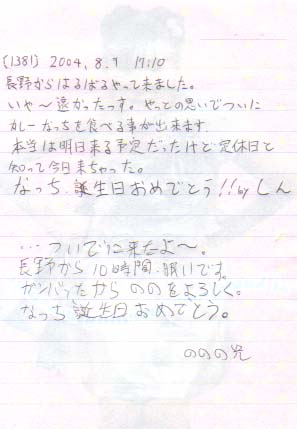 (1381) 2004.8.9 17:10
長野からはるばるやって来ました。
いや〜遠かったっす。やっとの思いでついに
カレーなっちを食べる事が出来ます。
本当は明日来る予定だったけど定休日と
知って今日来ちゃった。
なっち、誕生日おめでとう!!by しん
…ついでに来たよ〜。
長野から10時間、眠いです。
ガンバったから ののをよろしく。
なっち 誕生日おめでとう。
ののの兄